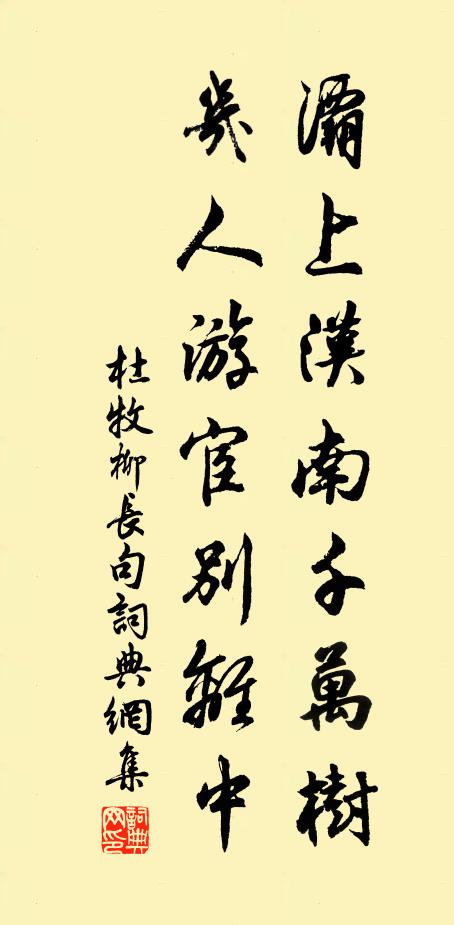 灞上漢南千萬樹
幾人游宦別離中
杜牧柳長句詞典網集
詞典
网印